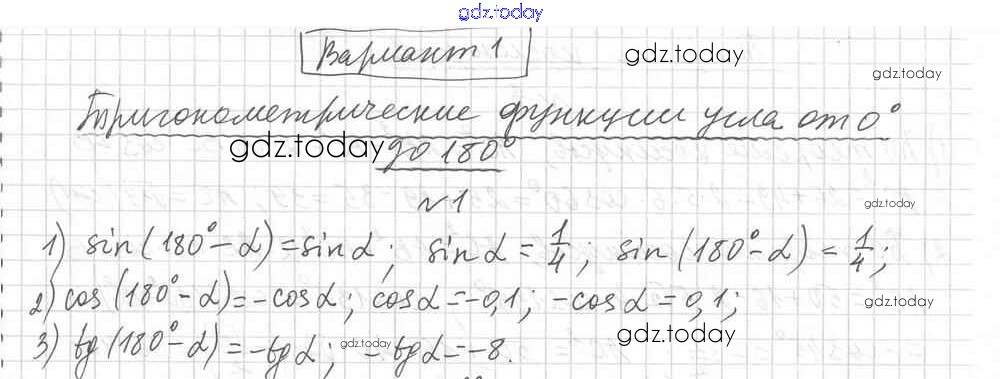 gdz.today
Вариант 1 gdz.today
gdz.today
Тригонометрические функции угла от 0°
gdz.today до 180°
№1
gdz.today
1) sin(180°-α)=sinα; sinα=1/4; sin(180°-α)=1/4;
2) cos(180°-α)=-cosα; cosα=-0,1; -cosα=0,1; gdz.today
3) tg(180°-α)=-tgα; gdz.today -tgα=-8. gdz.today